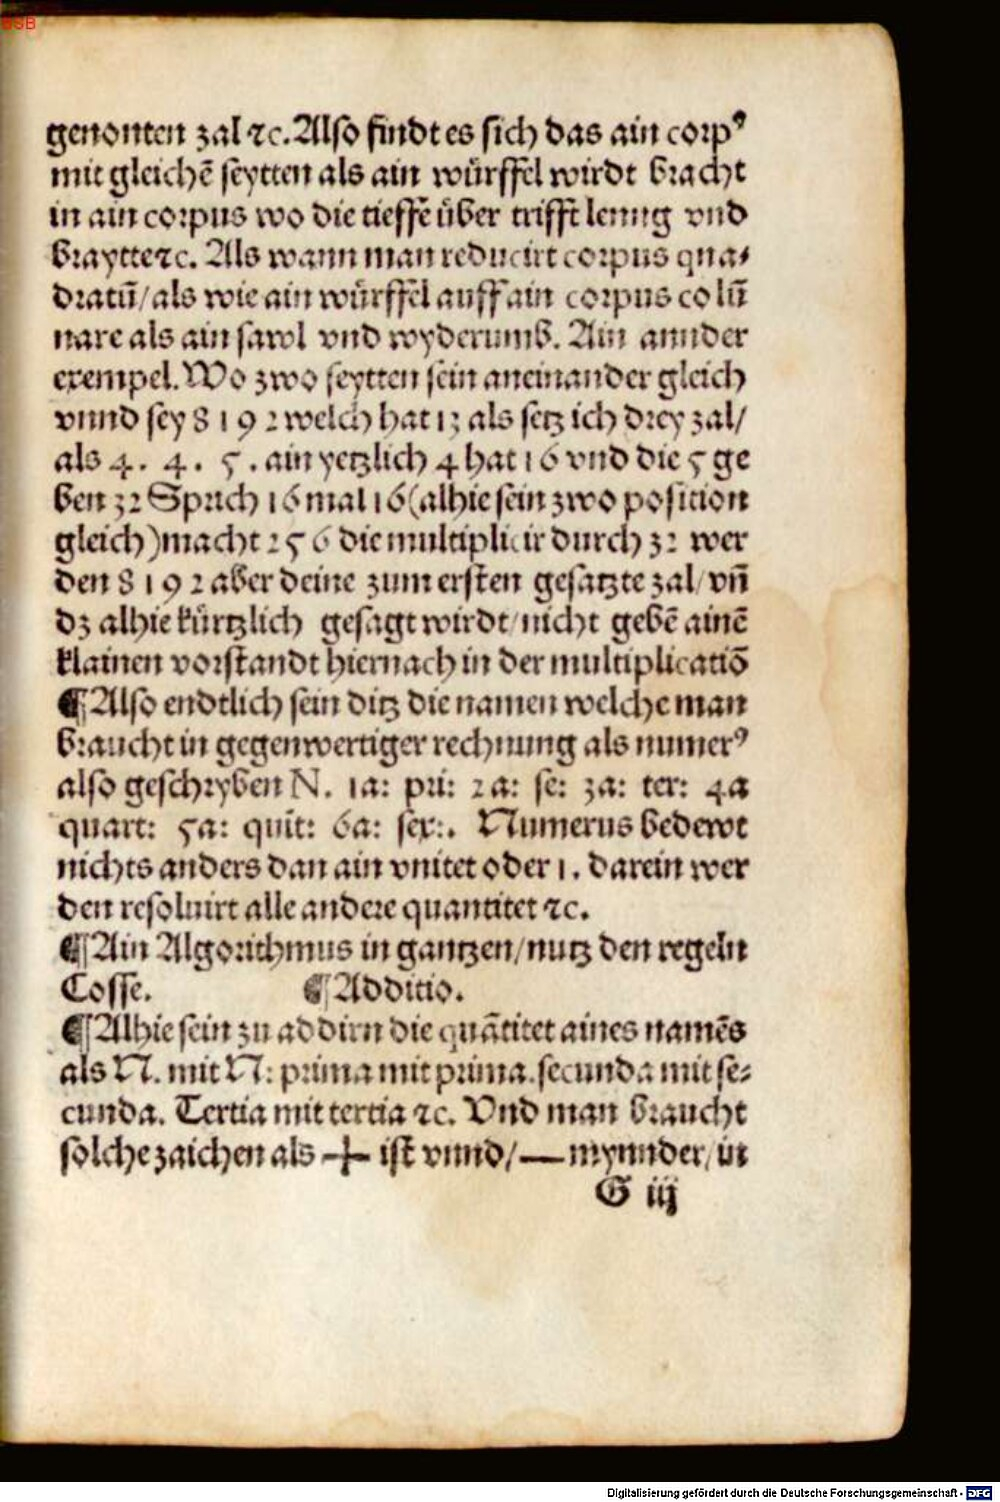 BSB
genomen zal ⁊c. Also findt es sich das ain corpꝰ
mit gleichē seytten als ain wuͤrffel wirdt bracht
in ain corpus wo die tieffe uͤber trifft leng vnd
braytte ⁊c. Als wann man reducirt corpus qua⸗
dratū/als wie ain wuͤrffel auff ain corpus colū
nare als ain sawl vnd wyderumb. Ain annder
exempel. Wo zwo seytten sein aneinander gleich
vnnd sey 8192 welch hat 13 als setz ich drey zal/
als 4. 4. 5. ain yetzlich 4 hat 16 vnd die 5 ge
ben 32 Sprich 16 mal 16 (alhie sein zwo position
gleich) macht 256 die multiplicir durch 32 wer
den 8192 aber deine zum ersten gesatzte zal/vn̄
dz alhie kuͤrtzlich gesagt wirdt/nicht gebē ainē
klainen vorstandt hiernach in der multiplicatiō
¶Also endtlich sein ditz die namen welche man
braucht in gegenwertiger rechnung als numerꝰ
also geschryben N. 1a: pri: 2a: se: 3a: ter: 4a
quart: 5a: quīt: 6a: sex:. Numerus bedewt
nichts anders dan ain vnitet oder 1. darein wer
den resoluirt alle andere quantitet ⁊c.
¶Ain Algorithmus in gantzen/nutz den regeln
Cosse. ¶Additio.
¶Alhie sein zu addirn die quātitet aines namēs
als N. mit N: prima mit prima. secunda mit se⸗
cunda. Tertia mit tertia ⁊c. Vnd man braucht
solche zaichen als + ist vnnd/— mynnder/in
G iij
Digitalisierung gefördert durch die Deutsche Forschungsgemeinschaft - DFG